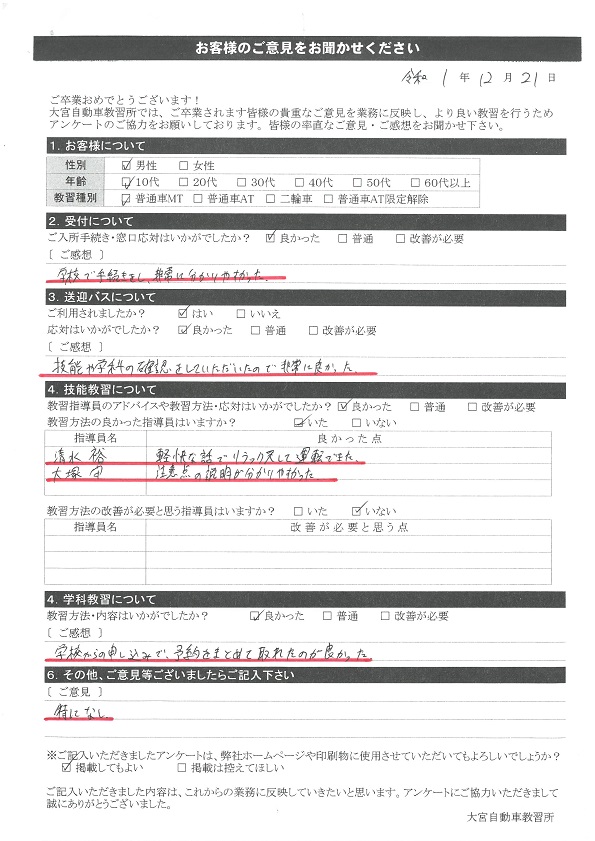 お客様のご意見をお聞かせください
令和 1 年 12 月 21 日
ご卒業おめでとうございます！
大宮自動車教習所では、ご卒業されます皆様の貴重なご意見を業務に反映し、より良い教習を行うため
アンケートのご協力をお願いしております。皆様の率直なご意見・ご感想をお聞かせ下さい。
1. お客様について
性別 ☑ 男性 □ 女性
年齢 ☑ 10代 □ 20代 □ 30代 □ 40代 □ 50代 □ 60代以上
教習種別 ☑ 普通車MT □ 普通車AT □ 二輪車 □ 普通車AT限定解除
2. 受付について
ご入所手続き・窓口応対はいかがでしたか？ ☑ 良かった □ 普通 □ 改善が必要
〔 ご感想 〕
学校で手続きをし、非常に分かりやすかった。
3. 送迎バスについて
ご利用されましたか？ ☑ はい □ いいえ
応対はいかがでしたか？ ☑ 良かった □ 普通 □ 改善が必要
〔 ご感想 〕
技能や学科の確認をしていただいたので非常に良かった
4. 技能教習について
教習指導員のアドバイスや教習方法・応対はいかがでしたか？ ☑ 良かった □ 普通 □ 改善が必要
教習方法の良かった指導員はいますか？ ☑ いた □ いない
指導員名 良かった点
清水 裕 軽快な話でリラックスして運転できた。
大塚 注意点の説明が分かりやすかった
教習方法の改善が必要と思う指導員はいますか？ □ いた ☑ いない
指導員名 改善が必要と思う点
4. 学科教習について
教習方法・内容はいかがでしたか？ ☑ 良かった □ 普通 □ 改善が必要
〔 ご感想 〕
学校からの申し込みで、予約をまとめて取れたのが良かった
6. その他、ご意見等ございましたらご記入下さい
〔 ご意見 〕
特になし
※ご記入いただきましたアンケートは、弊社ホームページや印刷物に使用させていただいてもよろしいでしょうか？
☑ 掲載してもよい □ 掲載は控えてほしい
ご記入いただきました内容は、これからの業務に反映していきたいと思います。アンケートにご協力いただきまして
誠にありがとうございました。
大宮自動車教習所